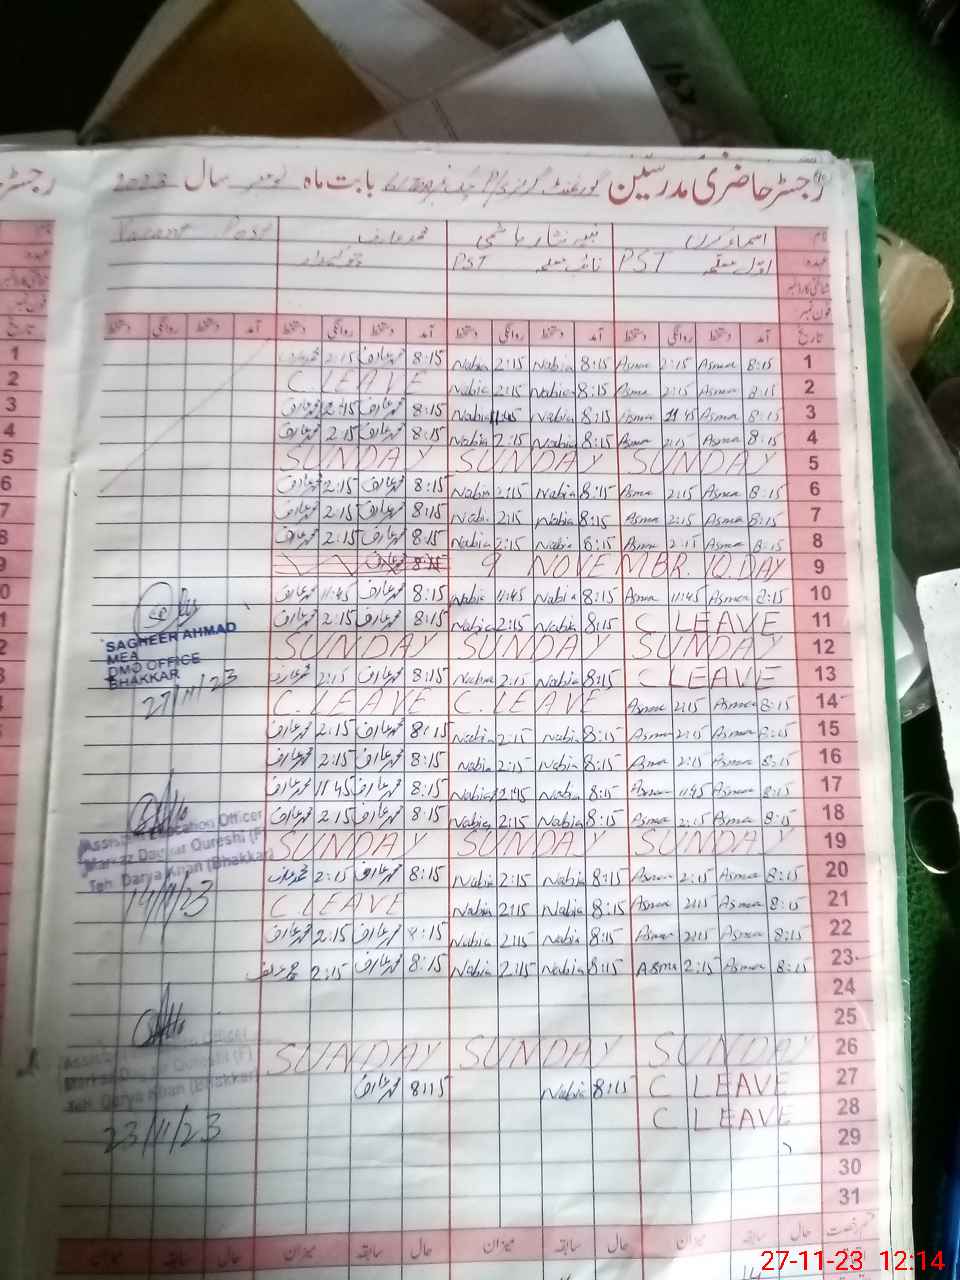 رجسٹر حاضری مدرسین گورنمنٹ گرلز P/S بابت ماہ نومبر سال 2023
نام اسماء محمد عارف Vacant Post
عہدہ اوّل معلمہ PST نائب معلمہ PST چوکیدار
شناختی کارڈ نمبر
فون نمبر
تاریخ آمد دستخط روانگی دستخط آمد دستخط روانگی دستخط آمد دستخط روانگی دستخط آمد دستخط روانگی دستخط
1 8:15 Asma 2:15 Asma 8:15 Nabia 2:15 Nabia 8:15 محمد عارف 2:15 محمد عارف
2 8:15 Asma 2:15 Asma 8:15 Nabia 2:15 Nabia C.LEAVE
3 8:15 Asma 11:45 Asma 8:15 Nabia 11:45 Nabia 8:15 محمد عارف 2:15 محمد عارف
4 8:15 Asma 2:15 Asma 8:15 Nabia 2:15 Nabia 8:15 محمد عارف 2:15 محمد عارف
5 SUNDAY SUNDAY SUNDAY
6 8:15 Asma 2:15 Asma 8:15 Nabia 2:15 Nabia 8:15 محمد عارف 2:15 محمد عارف
7 8:15 Asma 2:15 Asma 8:15 Nabia 2:15 Nabia 8:15 محمد عارف 2:15 محمد عارف
8 8:15 Asma 2:15 Asma 8:15 Nabia 2:15 Nabia 8:15 محمد عارف 2:15 محمد عارف
9 9 NOVEMBR. IQ.DAY
10 8:15 Asma 11:45 Asma 8:15 Nabia 11:45 Nabia 8:15 محمد عارف 11:45 محمد عارف
11 C LEAVE 8:15 Nabia 2:15 Nabia 8:15 محمد عارف 2:15 محمد عارف
12 SUNDAY SUNDAY SUNDAY
13 C LEAVE 8:15 Nabia 2:15 Nabia 8:15 محمد عارف 2:15 محمد عارف
14 8:15 Asma 2:15 Asma C.LEAVE C.LEAVE
15 8:15 Asma 2:15 Asma 8:15 Nabia 2:15 Nabia 8:15 محمد عارف 2:15 محمد عارف
16 8:15 Asma 2:15 Asma 8:15 Nabia 2:15 Nabia 8:15 محمد عارف 2:15 محمد عارف
17 8:15 Asma 11:45 Asma 8:15 Nabia Nabia 8:15 محمد عارف 11:45 محمد عارف
18 8:15 Asma 2:15 Asma 8:15 Nabia 2:15 Nabia 8:15 محمد عارف 2:15 محمد عارف
19 SUNDAY SUNDAY SUNDAY
20 8:15 Asma 2:15 Asma 8:15 Nabia 2:15 Nabia 8:15 محمد عارف 2:15 محمد عارف
21 8:15 Asma 2:15 Asma 8:15 Nabia 2:15 Nabia C LEAVE
22 8:15 Asma 2:15 Asma 8:15 Nabia 2:15 Nabia 8:15 محمد عارف 2:15 محمد عارف
23 8:15 Asma 2:15 Asma 8:15 Nabia 2:15 Nabia 8:15 محمد عارف 2:15 محمد عارف
24
25
26 SUNDAY SUNDAY SUNDAY
27 C LEAVE 8:15 Nabia 8:15 محمد عارف
28 C LEAVE
29
30
31
حال سابقہ میزان حال سابقہ میزان حال سابقہ میزان حال سابقہ میزان
SAGHEER AHMAD
MEA
DMO OFFICE
BHAKKAR
27/11/23
Assistant Education Officer
Markaz Daggar Qureshi (F)
Teh. Darya Khan (Bhakkar)
14/11/23
Teh. Darya Khan (Bhakkar)
23/11/23
27-11-23 12:14